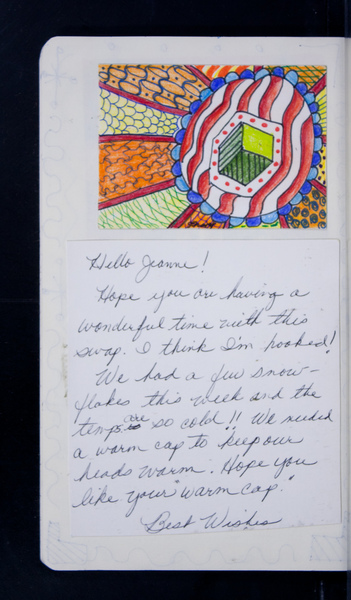 Hello Jeanne!
Hope you are having a
wonderful time with this
swap. I think I'm hooked!
We had a few snow-
flakes this week and the
temps are so cold!! We needed
a warm cap to keep our
heads warm. Hope you
like your "warm cap."
Best Wishes